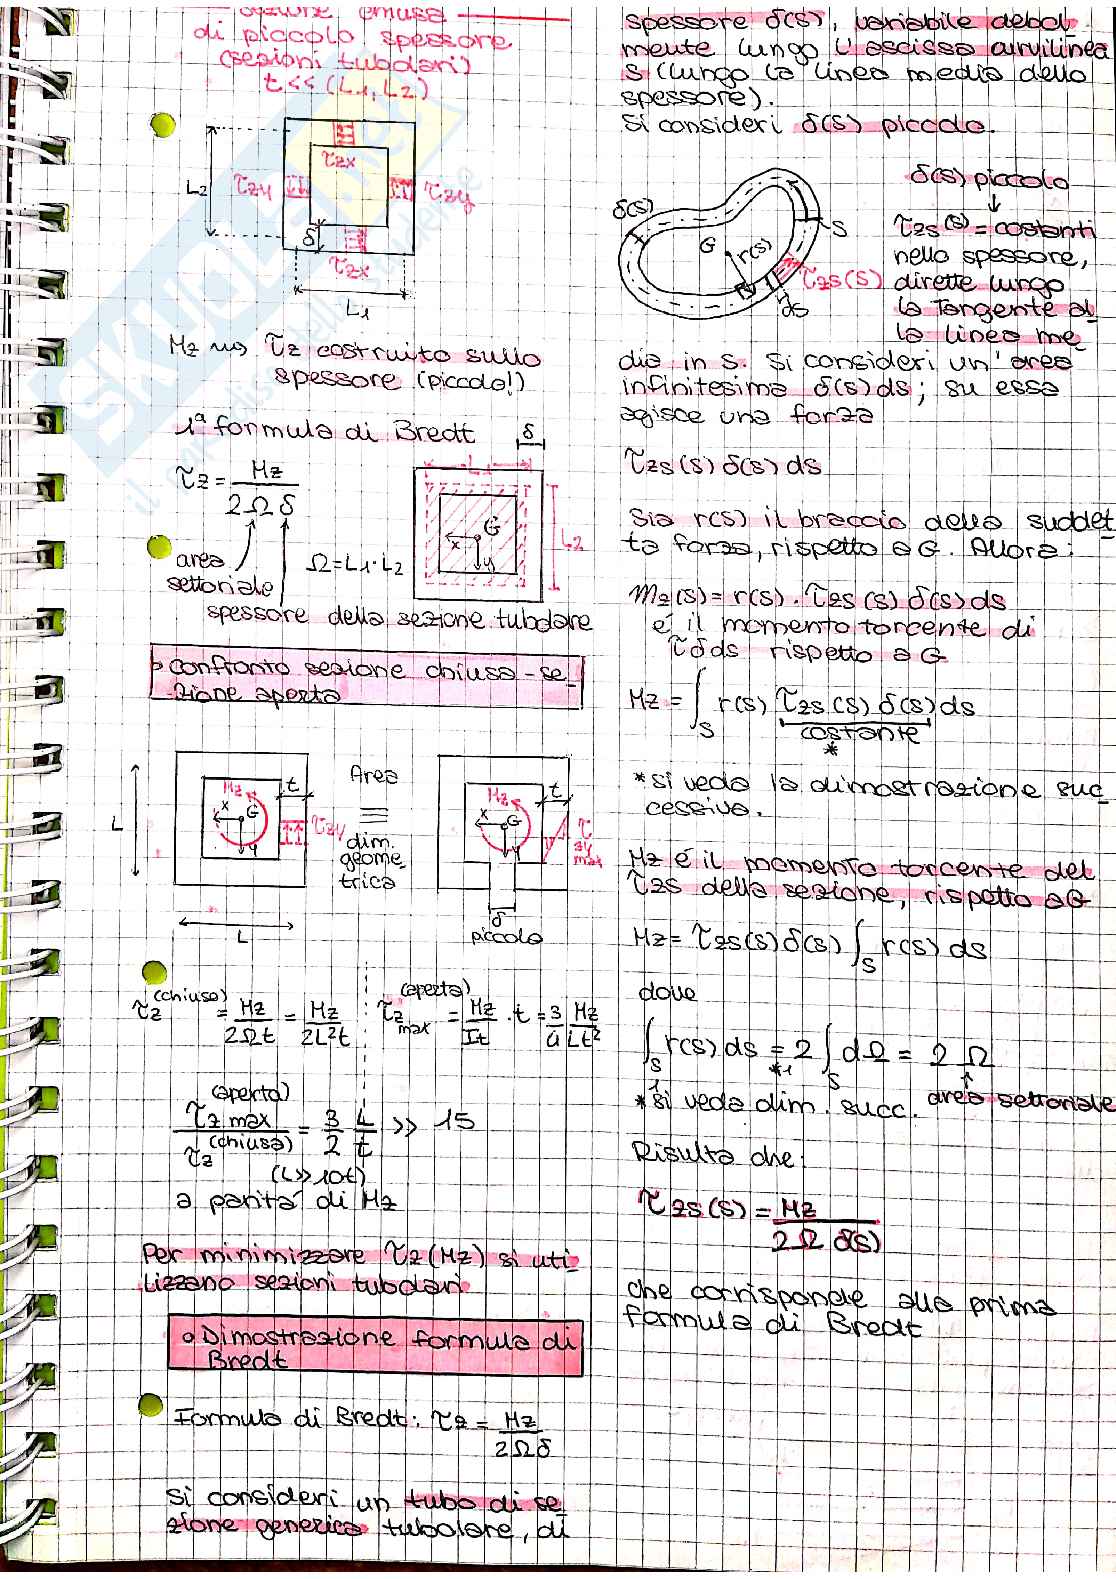 sezione chiusa
di piccolo spessore
(sezioni tubolari)
t << (L1, L2)
τzx
L2
τzy
τzy
δ
τzx
L1
Mz ⇝ τz costruito sullo
spessore (piccolo!)
1ª formula di Bredt
δ
τz = Mz / 2Ωδ
L1
G
x
y
L2
area
settoriale
Ω = L1 · L2
spessore della sezione tubolare
confronto sezione chiusa - se-
zione aperta
L
Mz
t
x
G
y
τzy
L
Area
≡
dim.
geome
trica
Mz
t
x
G
y
τ zy max
δ
piccolo
τz (chiusa) = Mz / 2Ωt = Mz / 2L²t
τz max (aperta) = Mz / It · t = 3/4 Mz / Lt²
τz max (aperta) / τz (chiusa) = 3/2 L/t >> 15
(L >> 10t)
a parità di Mz
Per minimizzare τz (Mz) si uti-
lizzano sezioni tubolari
Dimostrazione formula di
Bredt
Formula di Bredt: τz = Mz / 2Ωδ
Si consideri un tubo di se
zione generica tubolare, di
spessore δ(s), variabile debol-
mente lungo l'ascissa curvilinea
s (lungo la linea media dello
spessore).
Si consideri δ(s) piccolo.
δ(s)
G
r(s)
s
τzs(s)
ds
δ(s) piccolo
↓
τzs(s) = costanti
nello spessore,
dirette lungo
la tangente al
la linea me
dia in s. Si consideri un'area
infinitesima δ(s)ds; su essa
agisce una forza
τzs(s) δ(s) ds
Sia r(s) il braccio della suddet
ta forza, rispetto a G. Allora:
mz(s) = r(s) · τzs(s) δ(s) ds
é il momento torcente di
τδds rispetto a G
Mz = ∫s r(s) τzs(s) δ(s) ds
costante
*
* si veda la dimostrazione suc-
cessiva.
Mz é il momento torcente del
τzs della sezione, rispetto a G
Mz = τzs(s) δ(s) ∫s r(s) ds
dove
∫s r(s) ds =*1 2 ∫s dΩ = 2Ω
area settoriale
*1 si veda dim. succ.
Risulta che:
τzs(s) = Mz / 2Ω δ(s)
che corrisponde alla prima
formula di Bredt
SKUOLA.net